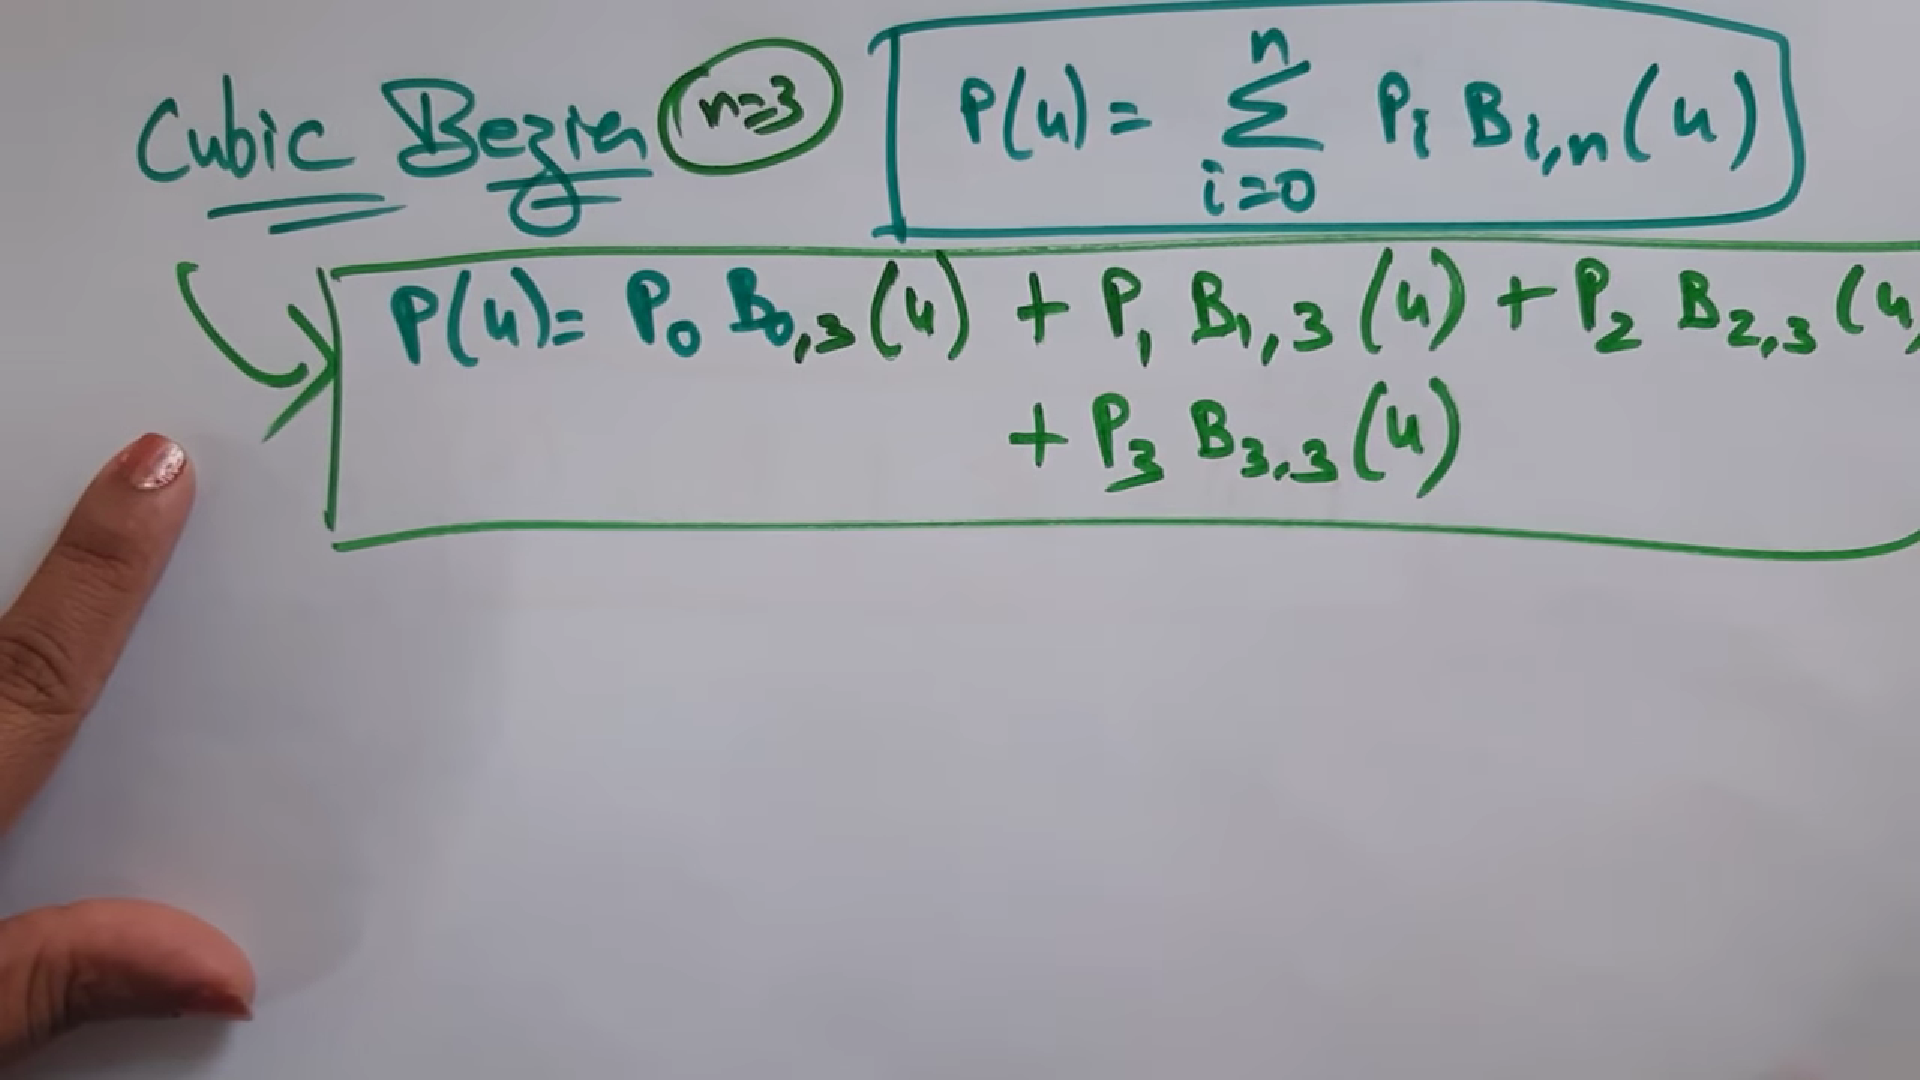 Cubic Bezier n=3
P(u) = n Σ i=0 Pi Bi,n(u)
P(u) = P₀ B₀,₃(u) + P₁ B₁,₃(u) + P₂ B₂,₃(u)
+ P₃ B₃,₃(u)